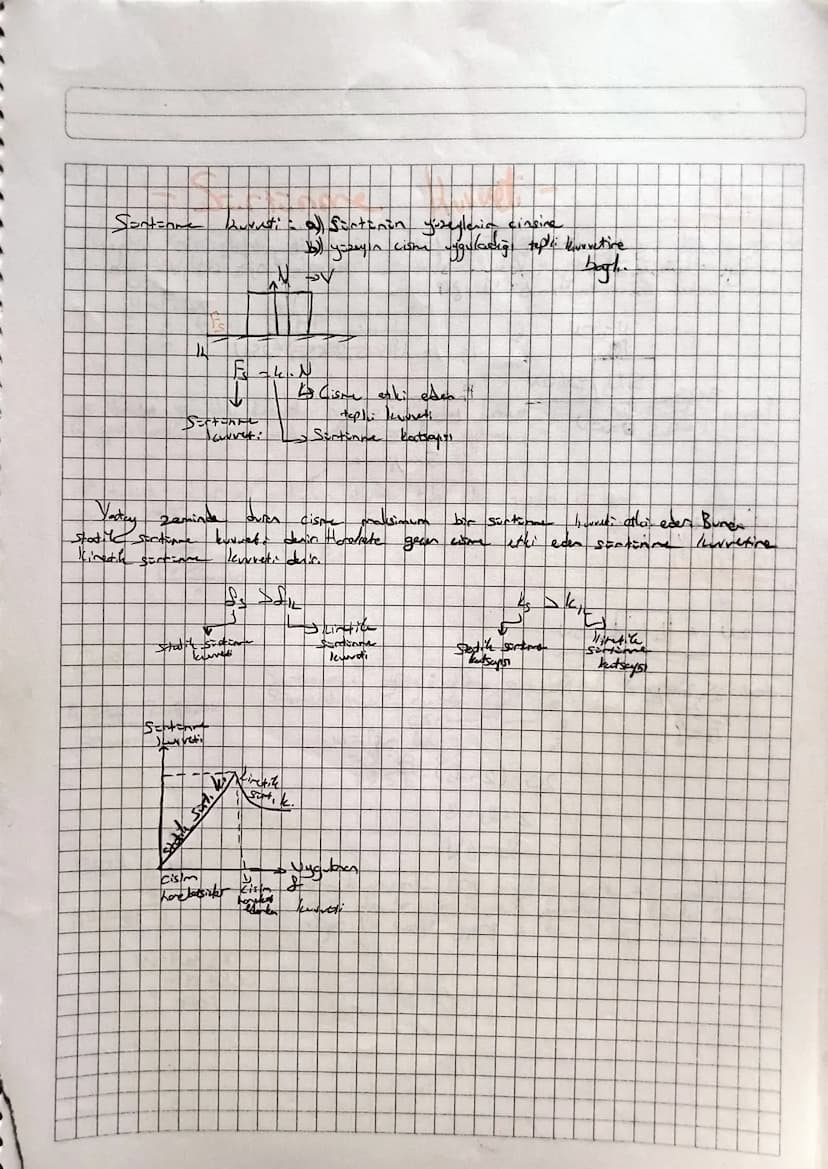 - Sürtünme Kuvveti -
Sürtünme kuvveti : a) Sürtünen yüzeylerin cinsine
b) yüzeyin cisme uyguladığı tepki kuvvetine
bağlı.
N → V
Fs
k
Fs = k . N
↳ Cisme etki eden
tepki kuvveti
Sürtünme
kuvveti
Sürtünme katsayısı
Yatay zeminde duran cisme maksimum bir sürtünme kuvveti etki eder. Buna
statik sürtünme kuvveti denir. Harekete geçen cisme etki eden sürtünme kuvvetine
kinetik sürtünme kuvveti denir.
fs > fk
statik sürtünme
kuvveti
kinetik
sürtünme
kuvveti
ks > kk
statik sürtünme
katsayısı
kinetik
sürtünme
katsayısı
Sürtünme
kuvveti
Statik sürt. k.
kinetik
sürt. k.
Uygulanan
f
kuvveti
cisim
hareketsizken
cisim
hareket